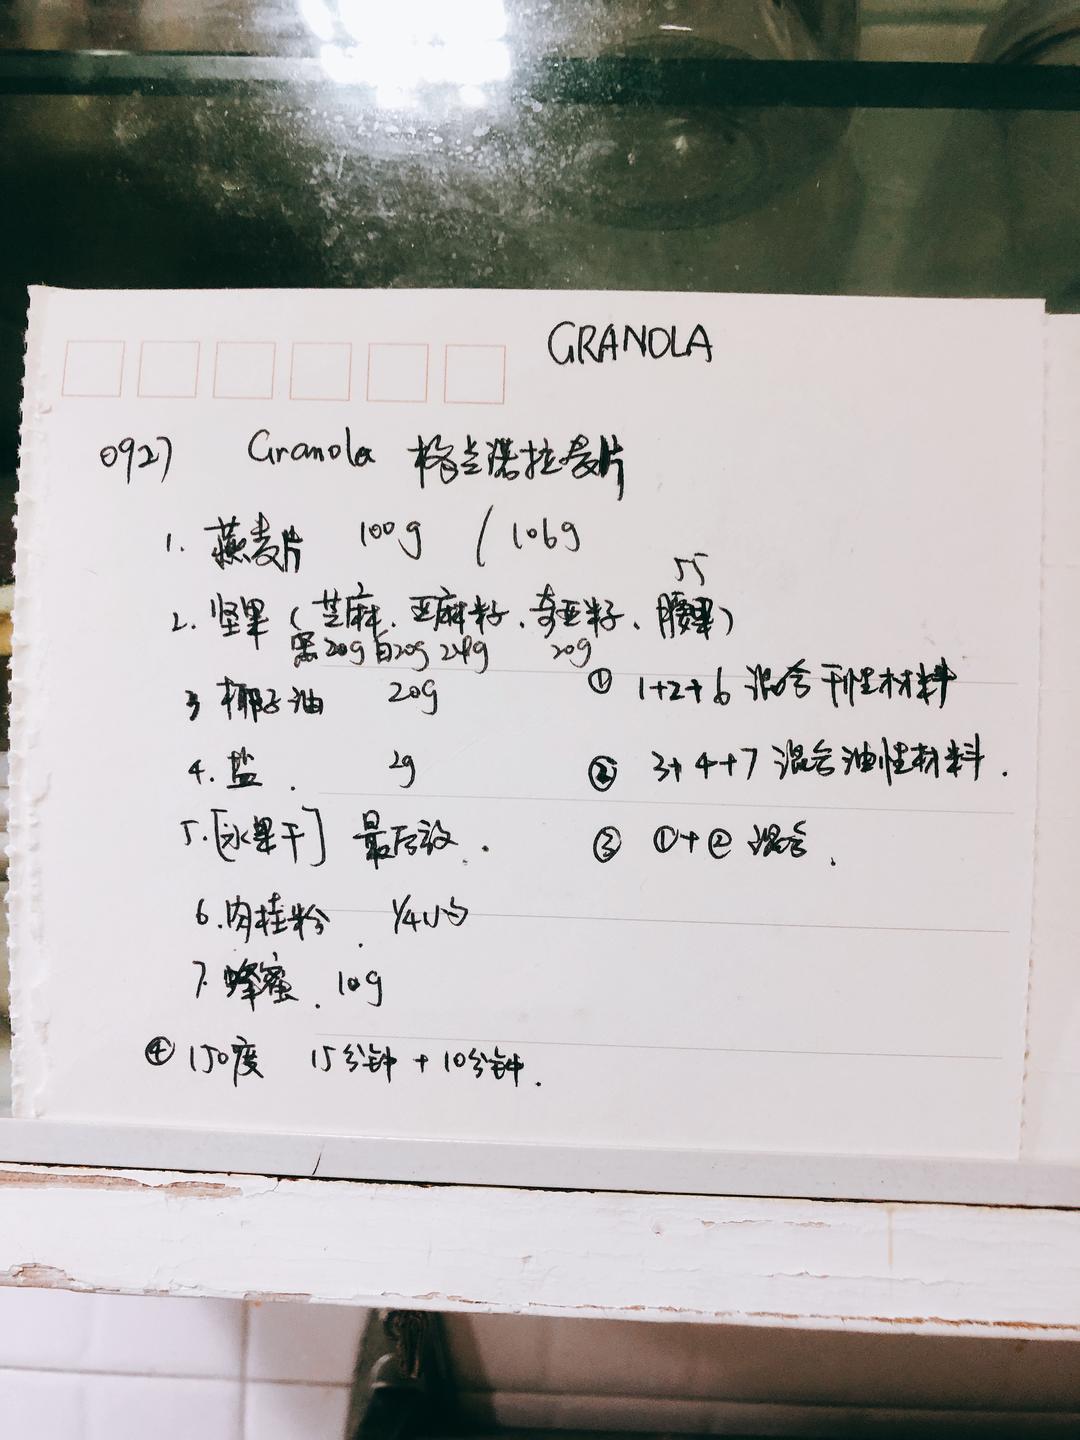 GRANOLA
0927 Granola 格兰诺拉麦片
1. 燕麦片 100g / 106g
55
2. 坚果 (芝麻、亚麻籽、奇亚籽、腰果)
黑20g 白20g 24g 20g
3 椰子油 20g
4. 盐. 2g
5. [水果干] 最后放..
6. 肉桂粉. 1/4小勺
7. 蜂蜜. 10g
① 1+2+6 混合干性材料
② 3+4+7 混合油性材料.
③ ①+② 混合.
④ 150度 15分钟 + 10分钟.